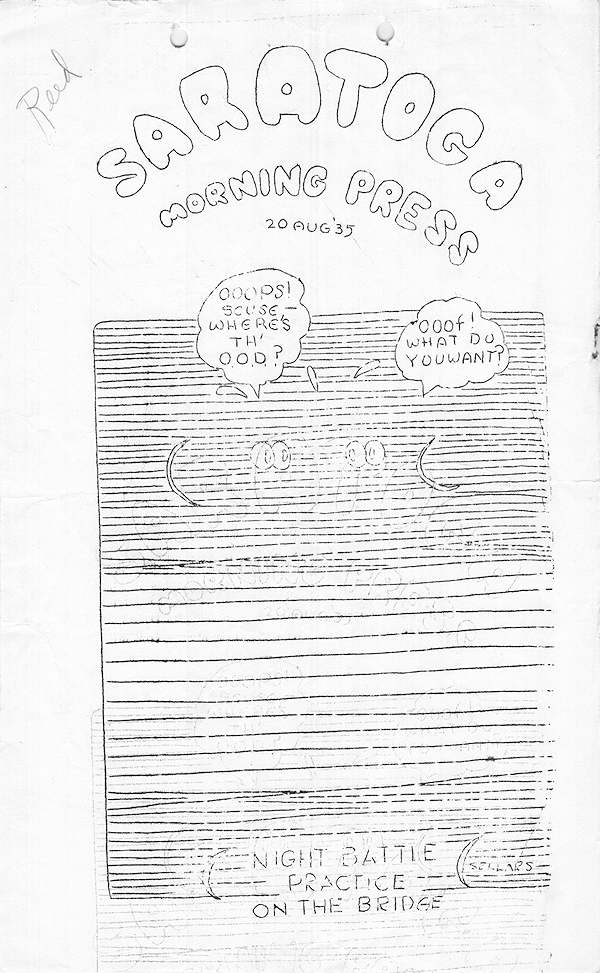 Reed
SARATOGA
MORNING PRESS
20 AUG '35
OOOPS!
SCUSE —
WHERE'S
TH'
O.O.D.?
OOOf!
WHAT DO
YOU WANT?
NIGHT BATTLE
PRACTICE
ON THE BRIDGE
SELLARS